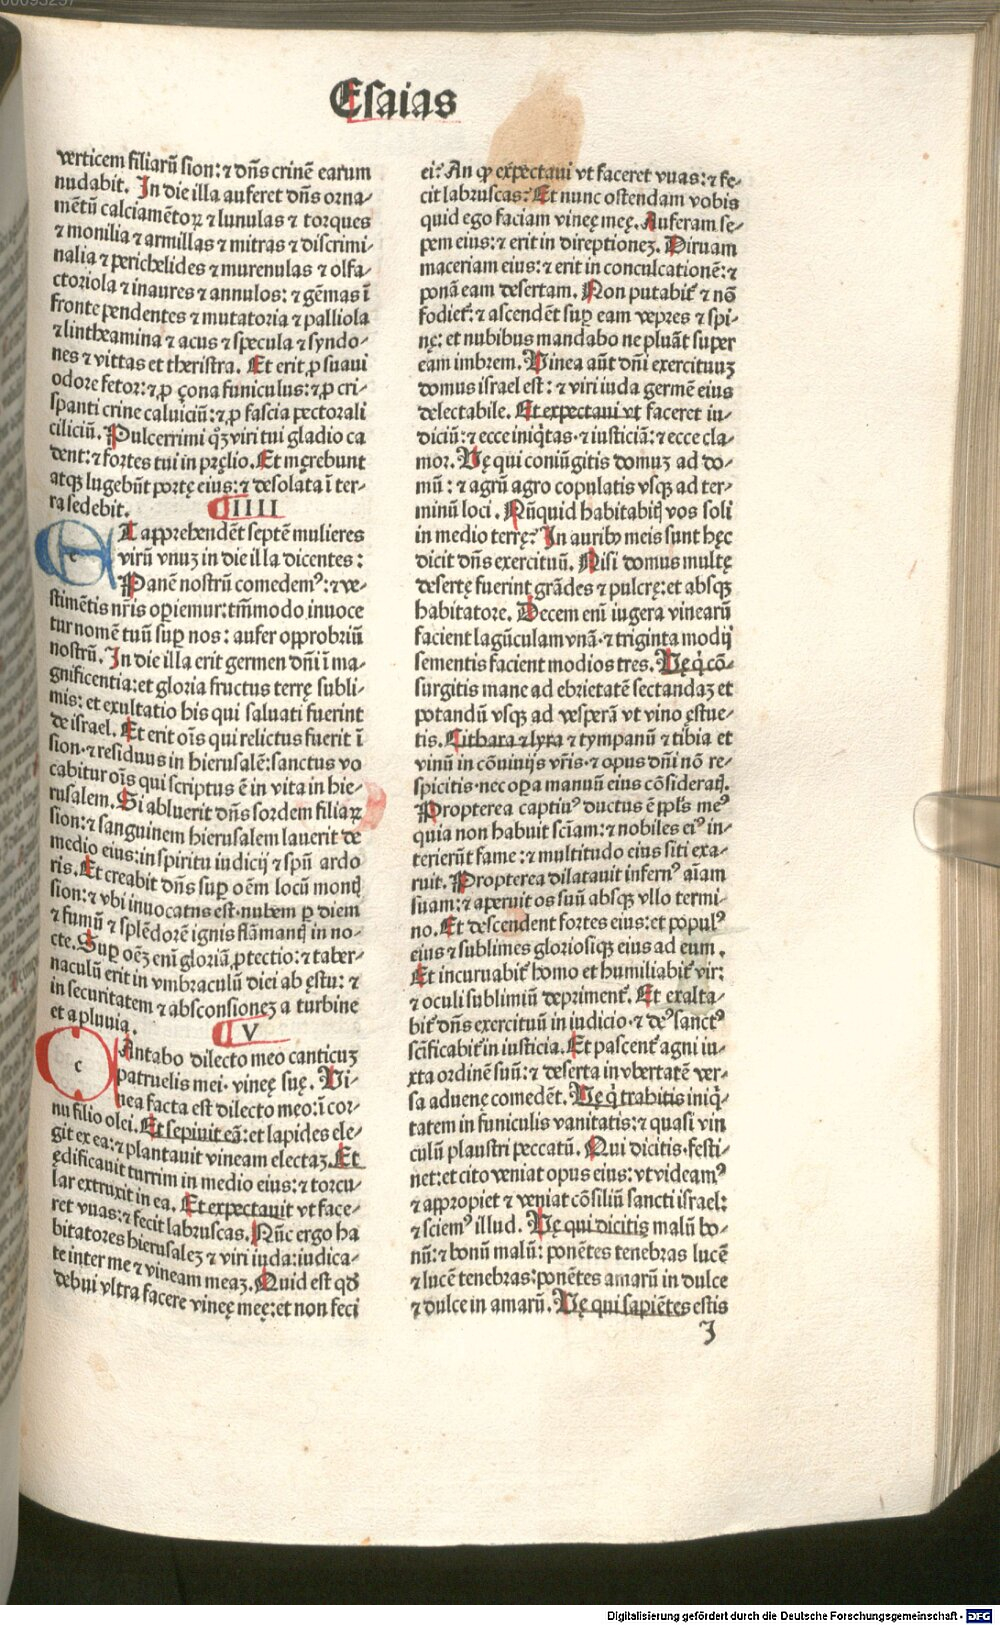 00093257
Esaias
verticem filiarū sion: ⁊ dn̄s crinē earum
nudabit. In die illa auferet dn̄s orna⸗
mētū calciamētoꝝ ⁊ lunulas ⁊ torques
⁊ monilia ⁊ armillas ⁊ mitras ⁊ discrimi⸗
nalia ⁊ perichelides ⁊ murenulas ⁊ olfa⸗
ctoriola ⁊ inaures ⁊ annulos: ⁊ gēmas ī
fronte pendentes ⁊ mutatoria ⁊ palliola
⁊ lintheamina ⁊ acus ⁊ specula ⁊ syndo⸗
nes ⁊ vittas et theristra. Et erit ꝓ suaui
odore fetor: ⁊ ꝓ çona funiculus: ⁊ ꝓ cri⸗
spanti crine caluiciū: ⁊ ꝓ fascia pectorali
ciliciū. Pulcerrimi qͦꝫ viri tui gladio ca
dent: ⁊ fortes tui in pręlio. Et męrebunt
atqꝫ lugebūt portę eius: ⁊ desolata ī ter⸗
ra sedebit. IIII
Et apprehendēt septē mulieres
virū vnuꝫ in die illa dicentes:
Panē nostrū comedemꝰ: ⁊ ve⸗
stimētis nr̄is operiemur: tm̄modo inuoce
tur nomē tuū suꝑ nos: aufer opprobriū
nostrū. In die illa erit germen dn̄i ī ma⸗
gnificentia: et gloria fructus terrę subli⸗
mis: et exultatio his qui saluati fuerint
de israel. Et erit oīs qui relictus fuerit ī
sion ⁊ residuus in hierusalē: sanctus vo
cabitur oīs qui scriptus ē in vita in hie⸗
rusalem. Si abluerit dn̄s sordem filiaꝝ
sion: ⁊ sanguinem hierusalem lauerit de
medio eius: in spiritu iudicij ⁊ spū ardo
ris. Et creabit dn̄s suꝑ oēm locū montꝭ
sion: ⁊ vbi inuocatus est. nubem ꝑ diem
⁊ fumū ⁊ splēdorē ignis flāmantꝭ in no⸗
cte. Suꝑ oēꝫ enī gloriā ꝓtectio: ⁊ taber⸗
naculū erit in vmbraculū diei ab ęstu: ⁊
in securitatem ⁊ absconsioneꝫ a turbine
et a pluuia. V
c Antabo dilecto meo canticuꝫ
patruelis mei. vineę suę. Vi⸗
nea facta est dilecto meo: ī cor⸗
nu filio olei. Et sepiuit eā: et lapides ele⸗
git ex ea: ⁊ plantauit vineam electaꝫ. Et
ędificauit turrim in medio eius: ⁊ torcu⸗
lar extruxit in ea. Et expectauit vt face⸗
ret vuas: ⁊ fecit labruscas. Nūc ergo ha
bitatores hierusaleꝫ ⁊ viri iuda: iudica⸗
te inter me ⁊ vineam meaꝫ. Quid est qd̄
debui vltra facere vineę meę: et non feci
ei? An ꝙ expectaui vt faceret vuas: ⁊ fe⸗
cit labruscas? Et nunc ostendam vobis
quid ego faciam vineę meę. Auferam se⸗
pem eius: ⁊ erit in direptioneꝫ. Diruam
maceriam eius: ⁊ erit in conculcationē: ⁊
ponā eam desertam. Non putabit̄ ⁊ nō
fodiet̄: ⁊ ascendēt suꝑ eam vepres ⁊ spi⸗
nę: et nubibus mandabo ne pluāt super
eam imbrem. Vinea aūt dn̄i exercituuꝫ
domus israel est: ⁊ viri iuda germē eius
delectabile. Et expectaui vt faceret iu⸗
diciū: ⁊ ecce iniqͥtas. ⁊ iusticiā: ⁊ ecce cla⸗
mor. Vę qui coniūgitis domuꝫ ad do⸗
mū: ⁊ agrū agro copulatis vsqꝫ ad ter⸗
minū loci. Nūquid habitabitꝭ vos soli
in medio terrę? In auribꝰ meis sunt hęc
dicit dn̄s exercituū. Nisi domus multę
desertę fuerint grādes ⁊ pulcrę: et absqꝫ
habitatore. Decem enī iugera vinearū
facient lagūculam vnā. ⁊ triginta modij
sementis facient modios tres. Vę qͥ cō⸗
surgitis mane ad ebrietatē sectandaꝫ et
potandū vsqꝫ ad vesperā vt vino ęstue⸗
tis. Cithara ⁊ lyra ⁊ tympanū ⁊ tibia et
vinū in cōuiuijs vr̄is. ⁊ opus dn̄i nō re⸗
spicitis. nec oꝑa manuū eius cōsideratꝭ.
Propterea captiuꝰ ductus ē ppl̄s meꝰ
quia non habuit sciam̄: ⁊ nobiles eiꝰ in⸗
terierūt fame: ⁊ multitudo eius siti exa⸗
ruit. Propterea dilatauit infernꝰ aīam
suam: ⁊ aperuit os suū absqꝫ vllo termi⸗
no. Et descendent fortes eius: et populꝰ
eius ⁊ sublimes gloriosiqꝫ eius ad eum.
Et incuruabit̄ homo et humiliabit̄ vir:
⁊ oculi sublimiū deprimēt̄. Et exalta⸗
bit̄ dn̄s exercituū in iudicio. ⁊ deꝰ sanctꝰ
sc̄ificabit̄ in iusticia. Et pascent̄ agni iu⸗
xta ordinē suū: ⁊ deserta in vbertatē ver⸗
sa aduenę comedēt. Vę qͥ trahitis iniqͥ⸗
tatem in funiculis vanitatis: ⁊ quasi vin
culū plaustri peccatū. Qui dicitis. festi⸗
net: et cito veniat opus eius: vt videamꝰ
⁊ appropiet ⁊ veniat cōsiliū sancti israel:
⁊ sciemꝰ illud. Vę qui dicitis malū bo⸗
nū: ⁊ bonū malū: ponētes tenebras lucē
⁊ lucē tenebras: ponētes amarū in dulce
⁊ dulce in amarū. Vę qui sapiētes estis
J
Digitalisierung gefördert durch die Deutsche Forschungsgemeinschaft - DFG